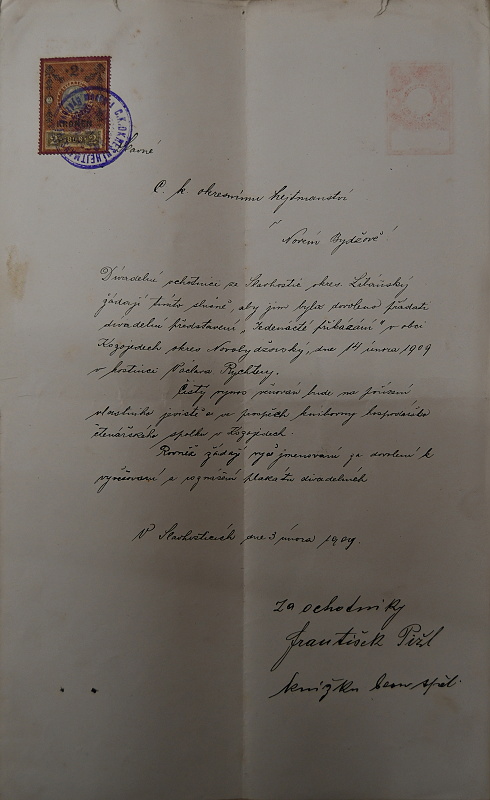 2
KRONEN
2 1898 2
Slavné
C. k. okresnímu hejtmanství
v
Novém Bydžově!
Divadelní ochotníci ze Slavhostic, okres Libáňský
žádají tímto slušně, aby jim bylo dovoleno pořádati
divadelní představení „Jedenácté přikázání" v obci
Kozojedech okres Novobydžovský, dne 14 února 1909
v hostinci Václava Rychtery.
Čistý výnos věnován bude na pořízení
vlastního jeviště a ve prospěch knihovny hospodářsko
čtenářského spolku v Kozojedech.
Rovněž žádají výš jmenovaní za dovolení k
vyvěšování a roznášení plakátů divadelních
V Slavhosticích dne 3 února 1909.
Za ochotníky
František Pižl
knížku